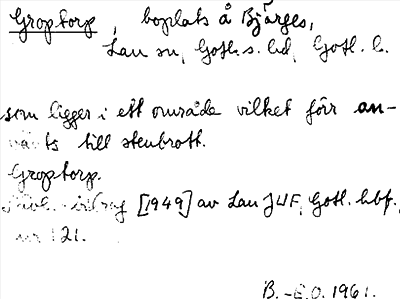 Groptorp, boplats å Bjärges,
Lau sn, Goth. s. hd, Gotl. l.
som ligger i ett område vilket förr an-
vänts till stenbrott.
Groptorp.
[1949] av Lau JUF, Gotl. hbf.
nr 121.
B.-E.O. 1961.